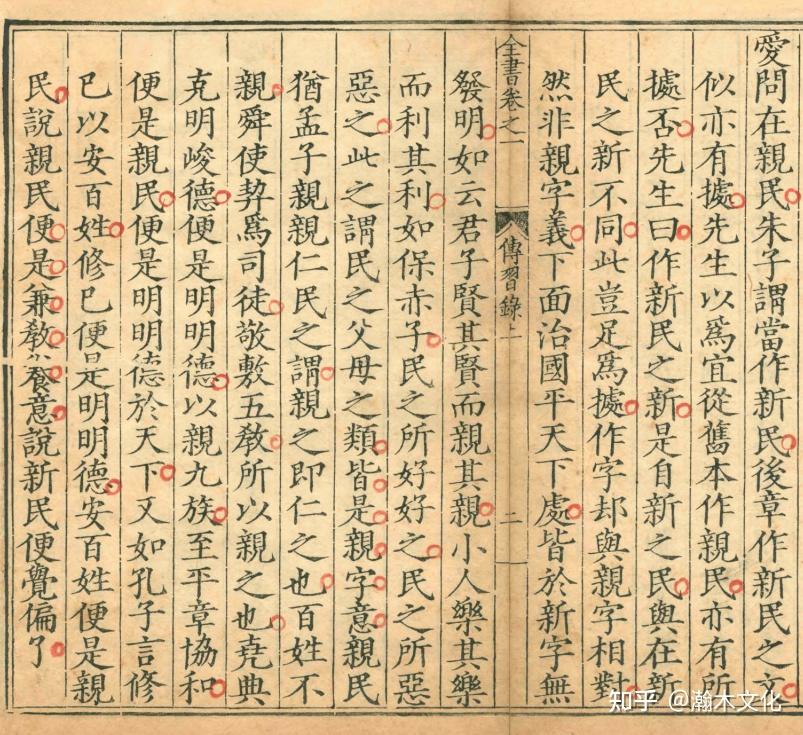 愛問在親民朱子謂當作新民後章作新民之文
似亦有據先生以爲宜從舊本作親民亦有所
據否先生曰作新民之新是自新之民與在新
民之新不同此豈足爲據作字却與親字相對
然非親字義下面治國平天下處皆於新字無
全書卷之一 傳習錄上 二
發明如云君子賢其賢而親其親小人樂其樂
而利其利如保赤子民之所好好之民之所惡
惡之此之謂民之父母之類皆是親字意親民
猶孟子親親仁民之謂親之即仁之也百姓不
親舜使契爲司徒敬敷五敎所以親之也堯典
克明峻德便是明明德以親九族至平章協和
便是親民便是明明德於天下又如孔子言修
己以安百姓修己便是明明德安百姓便是親
民說親民便是兼敎養意說新民便覺偏了
知乎 @瀚木文化